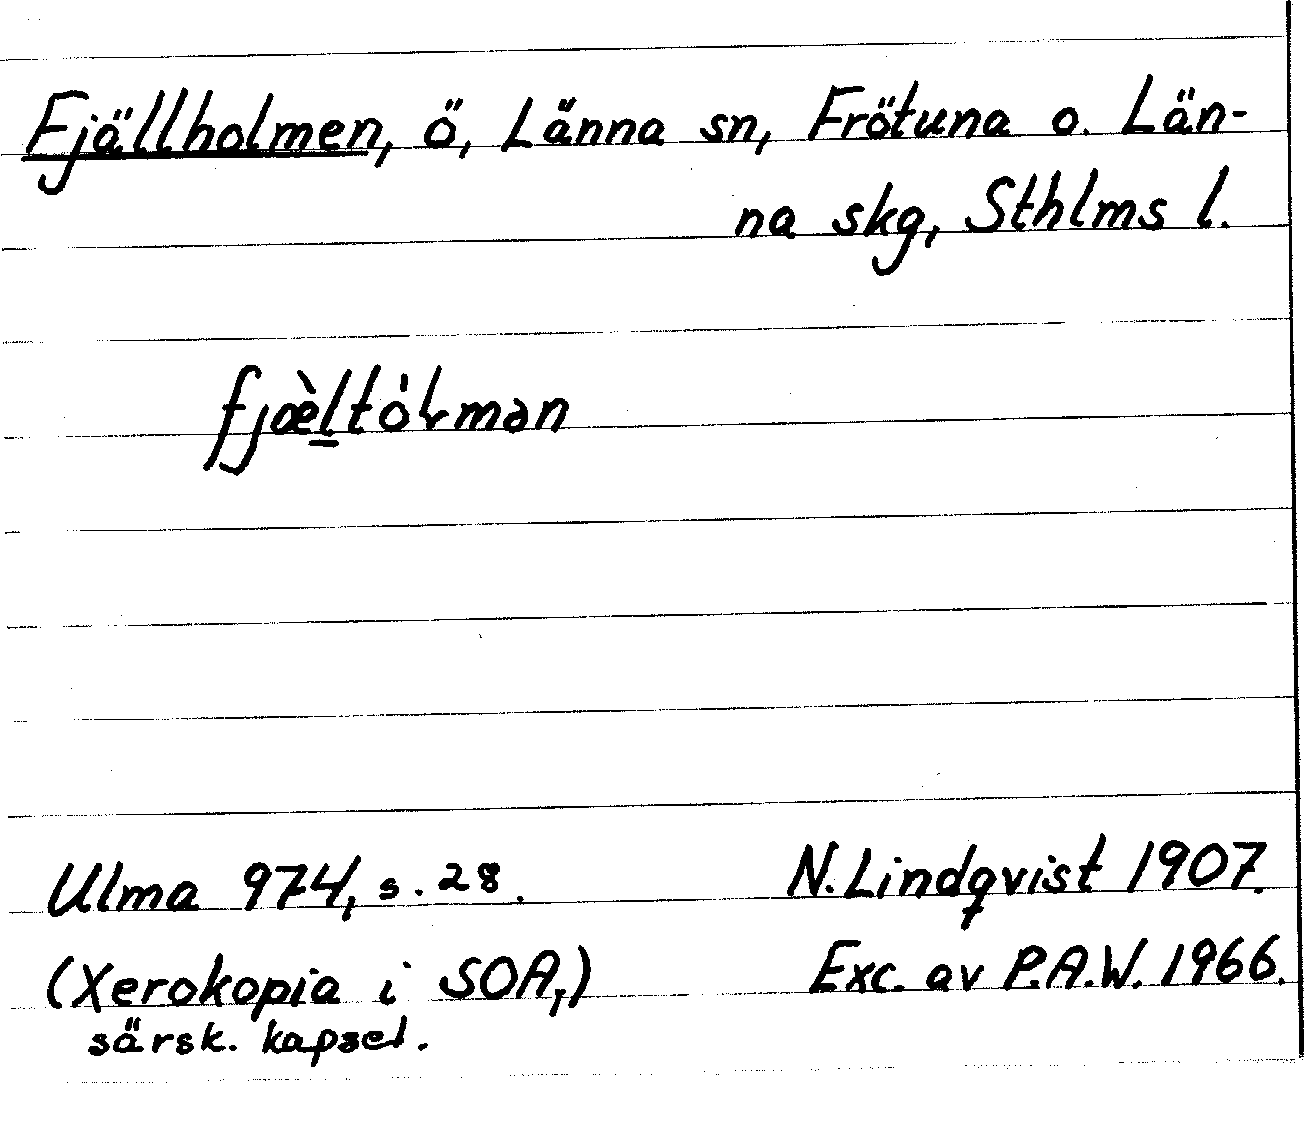 Fjällholmen, ö, Länna sn, Frötuna o. Län-
na skg, Sthlms l.
Ulma 974, s. 28.
N. Lindqvist 1907.
(Xerokopia i SOA,)
särsk. kapsel.
Exc. av P.A.W. 1966.